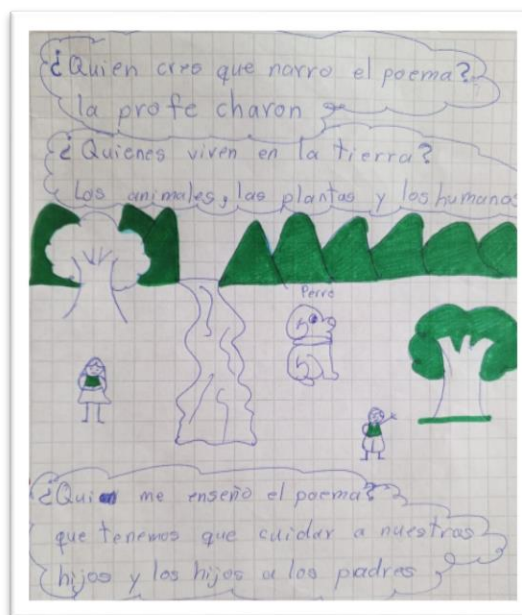 ¿Quien creo que narro el poema?
la profe charon
¿Quienes viven en la tierra?
Los animales, las plantas y los humanos
Perro
¿Qui me enseño el poema?
que tenemos que cuidar a nuestras
hijos y los hijos a los padres